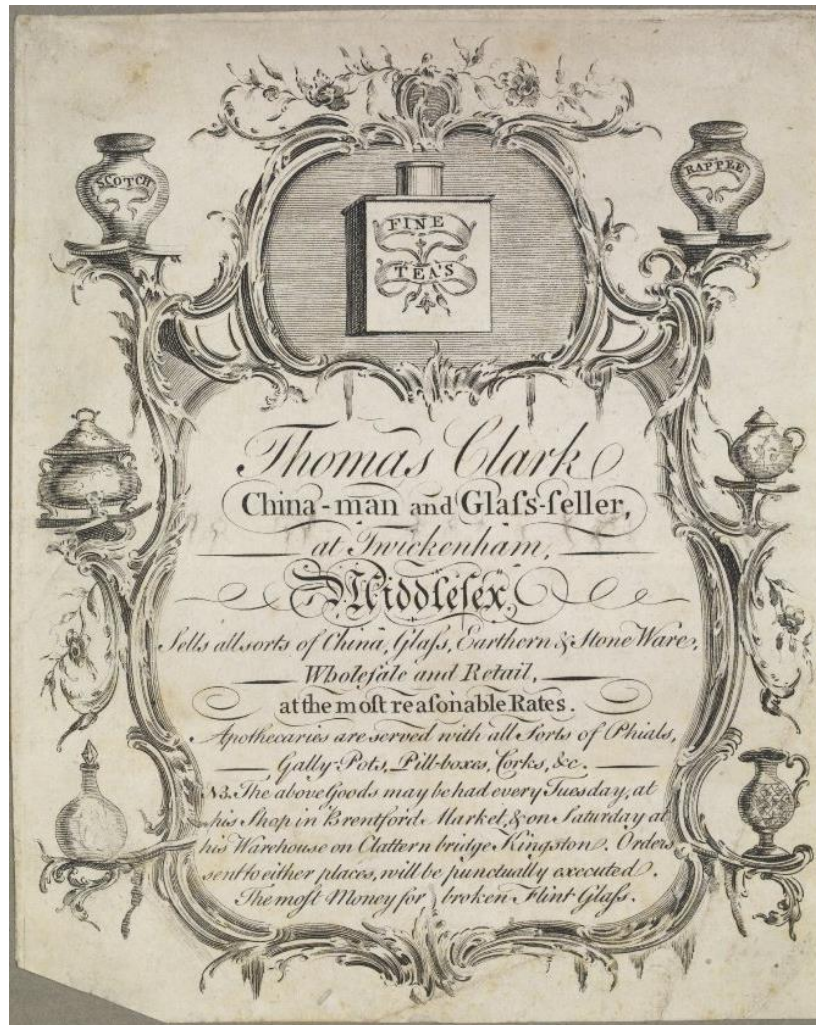 SCOTCH
RAPPEE
FINE
TEA'S
Thomas Clark
China-man and Glaſs-ſeller,
at Twickenham,
Middleſex,
Sells all sorts of China, Glaſs, Earthern & Stone Ware,
Wholeſale and Retail,
at the moſt reaſonable Rates.
Apothecaries are served with all Sorts of Phials,
Gally-Pots, Pill-boxes, Corks, &c.
NB. The above Goods may be had every Tuesday, at
his Shop in Brentford Market, & on Saturday at
his Warehouse on Clattern bridge Kingston. Orders
sent to either places, will be punctually executed.
The moſt Money for broken Flint Glaſs.